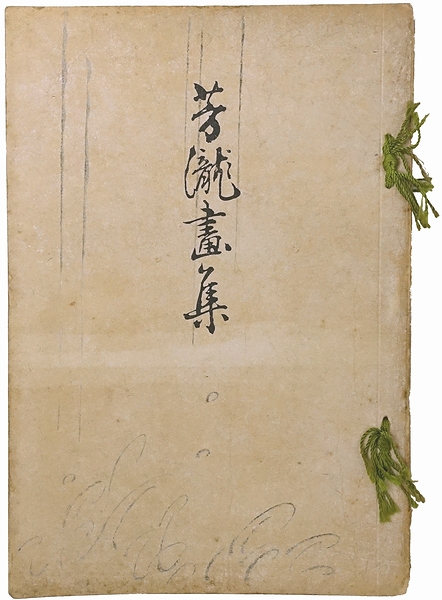 芳瀧畫集